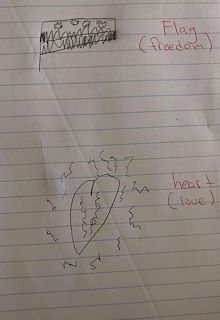 Flag
(freedom)
heart
(love)